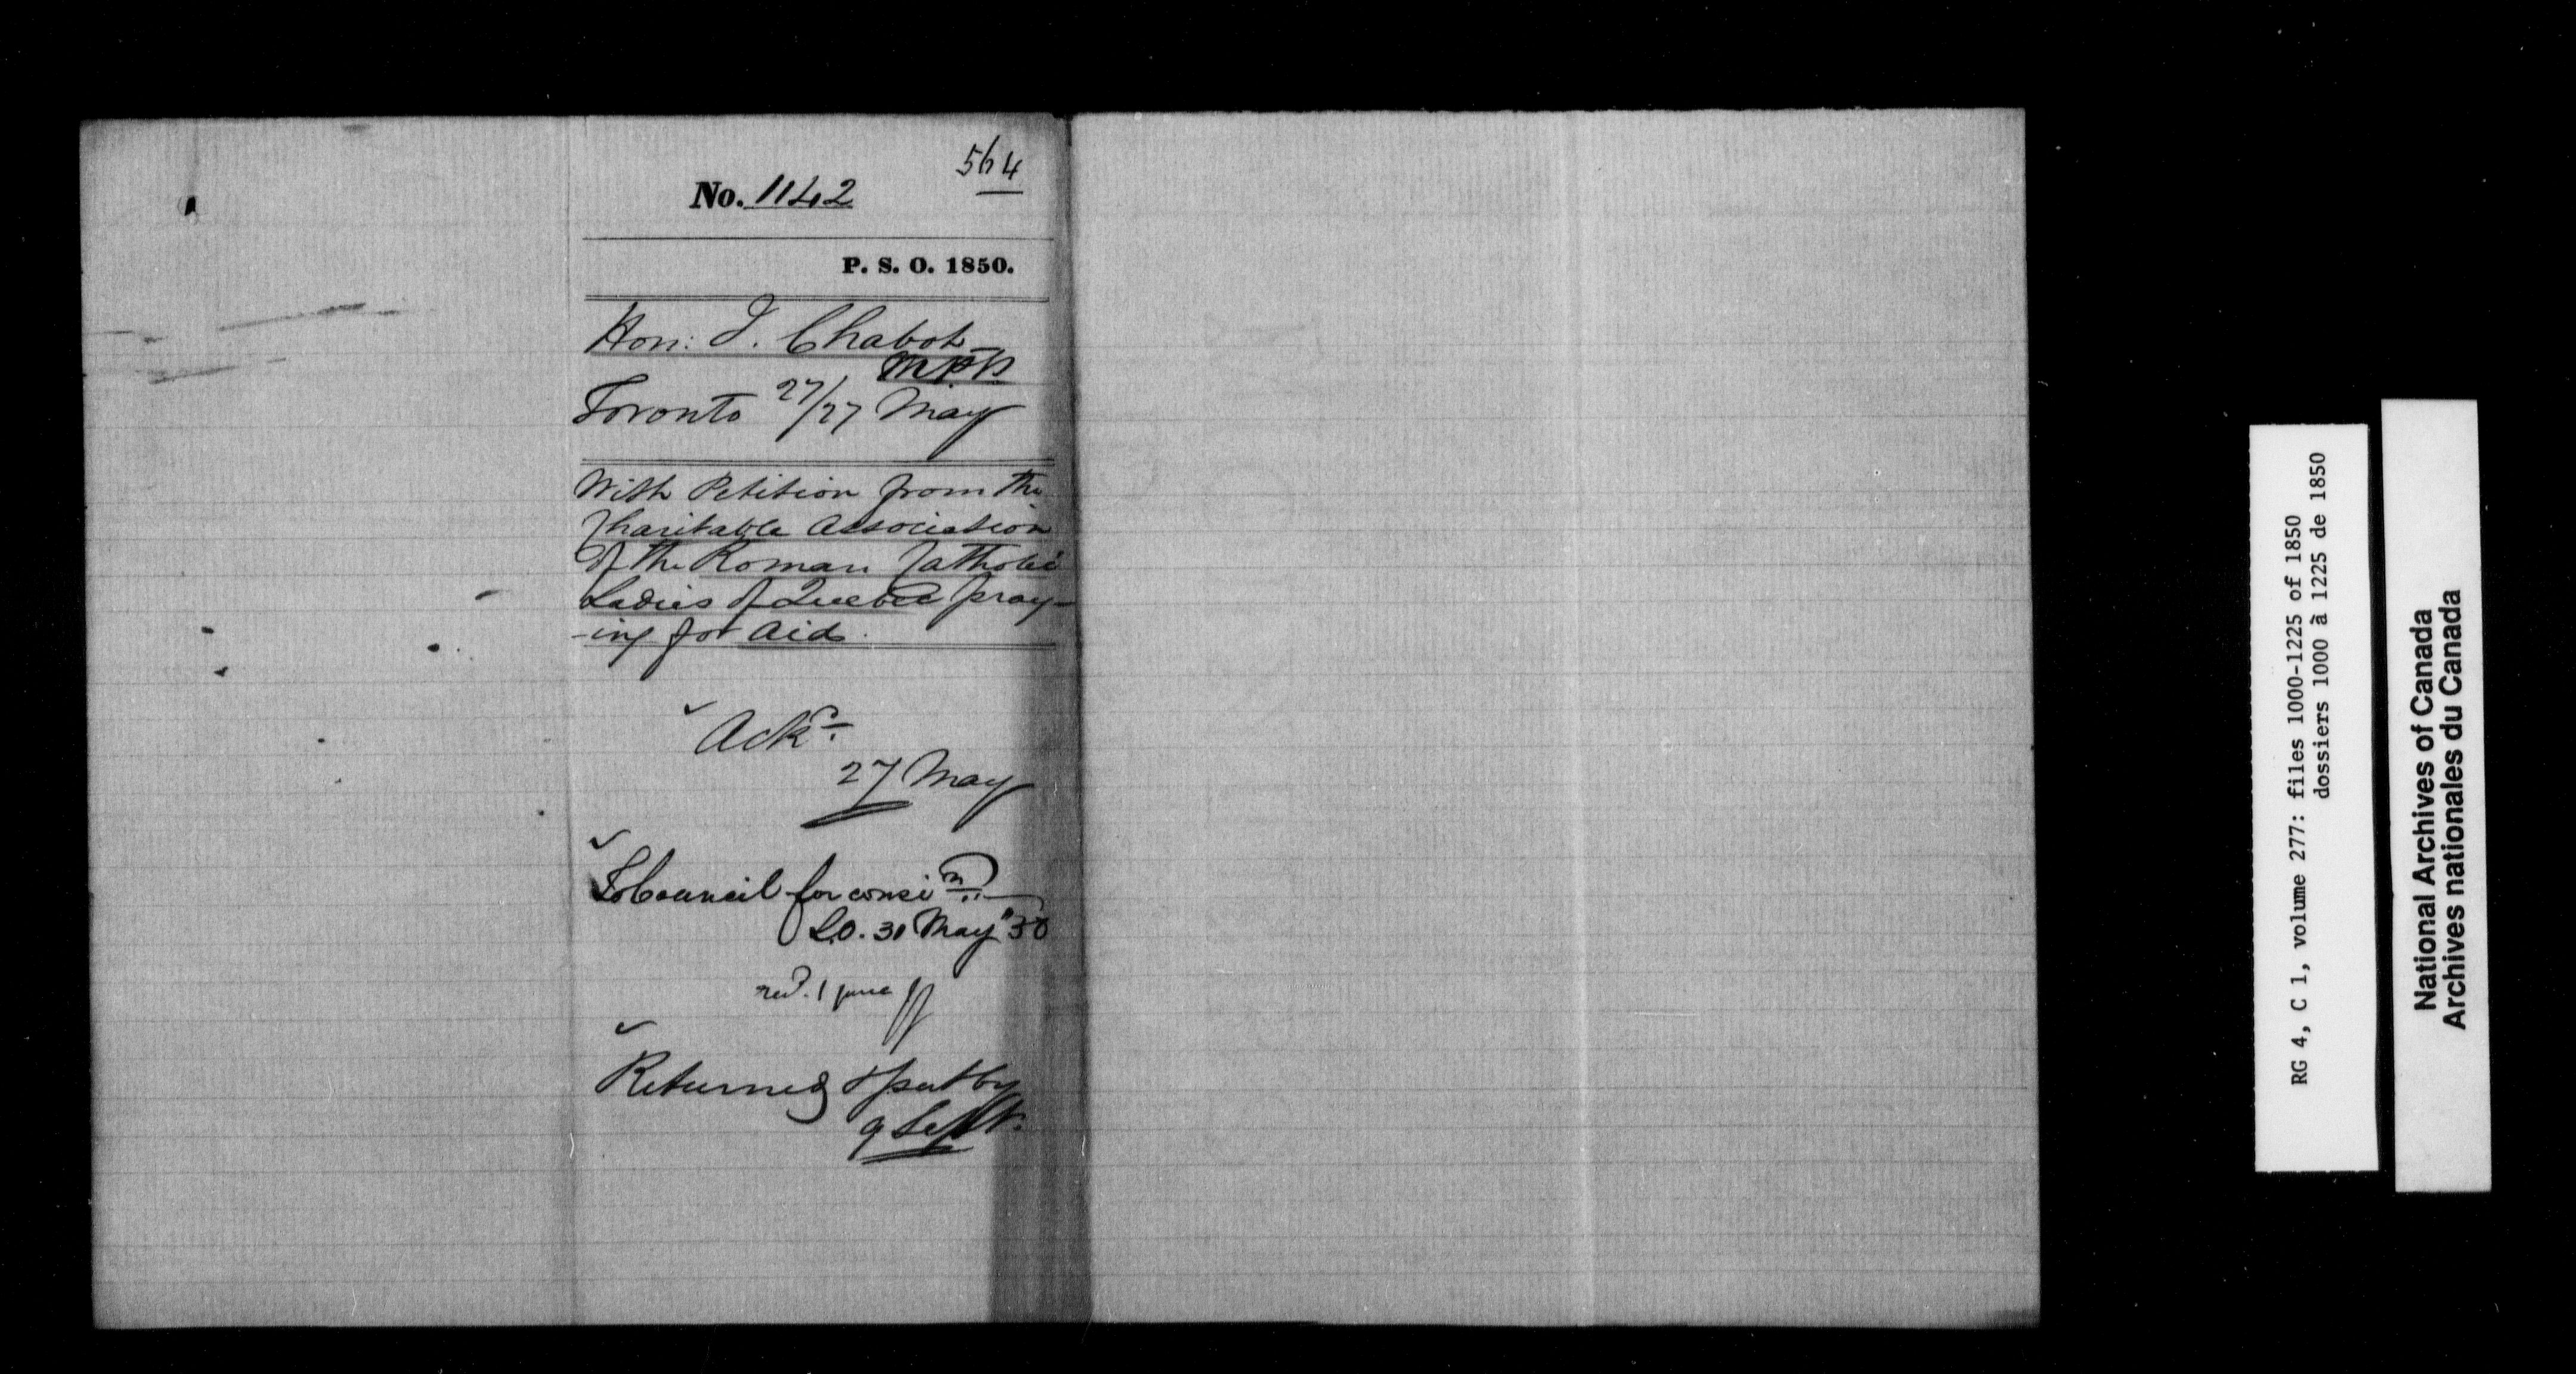 564
No. 1142
P. S. O. 1850.
Hon: J. Chabot
MPP
Toronto 27/27 May
With Petition from the
Charitable Association
of the Roman Catholic
Ladies of Quebec pray-
-ing for aid.
Ackd.
27 May
To Council for consn.
S.O. 31 May "50
recd. 1 June
Returned & put by
9 Sept.
RG 4, C 1, volume 277: files 1000-1225 of 1850
dossiers 1000 à 1225 de 1850
National Archives of Canada
Archives nationales du Canada